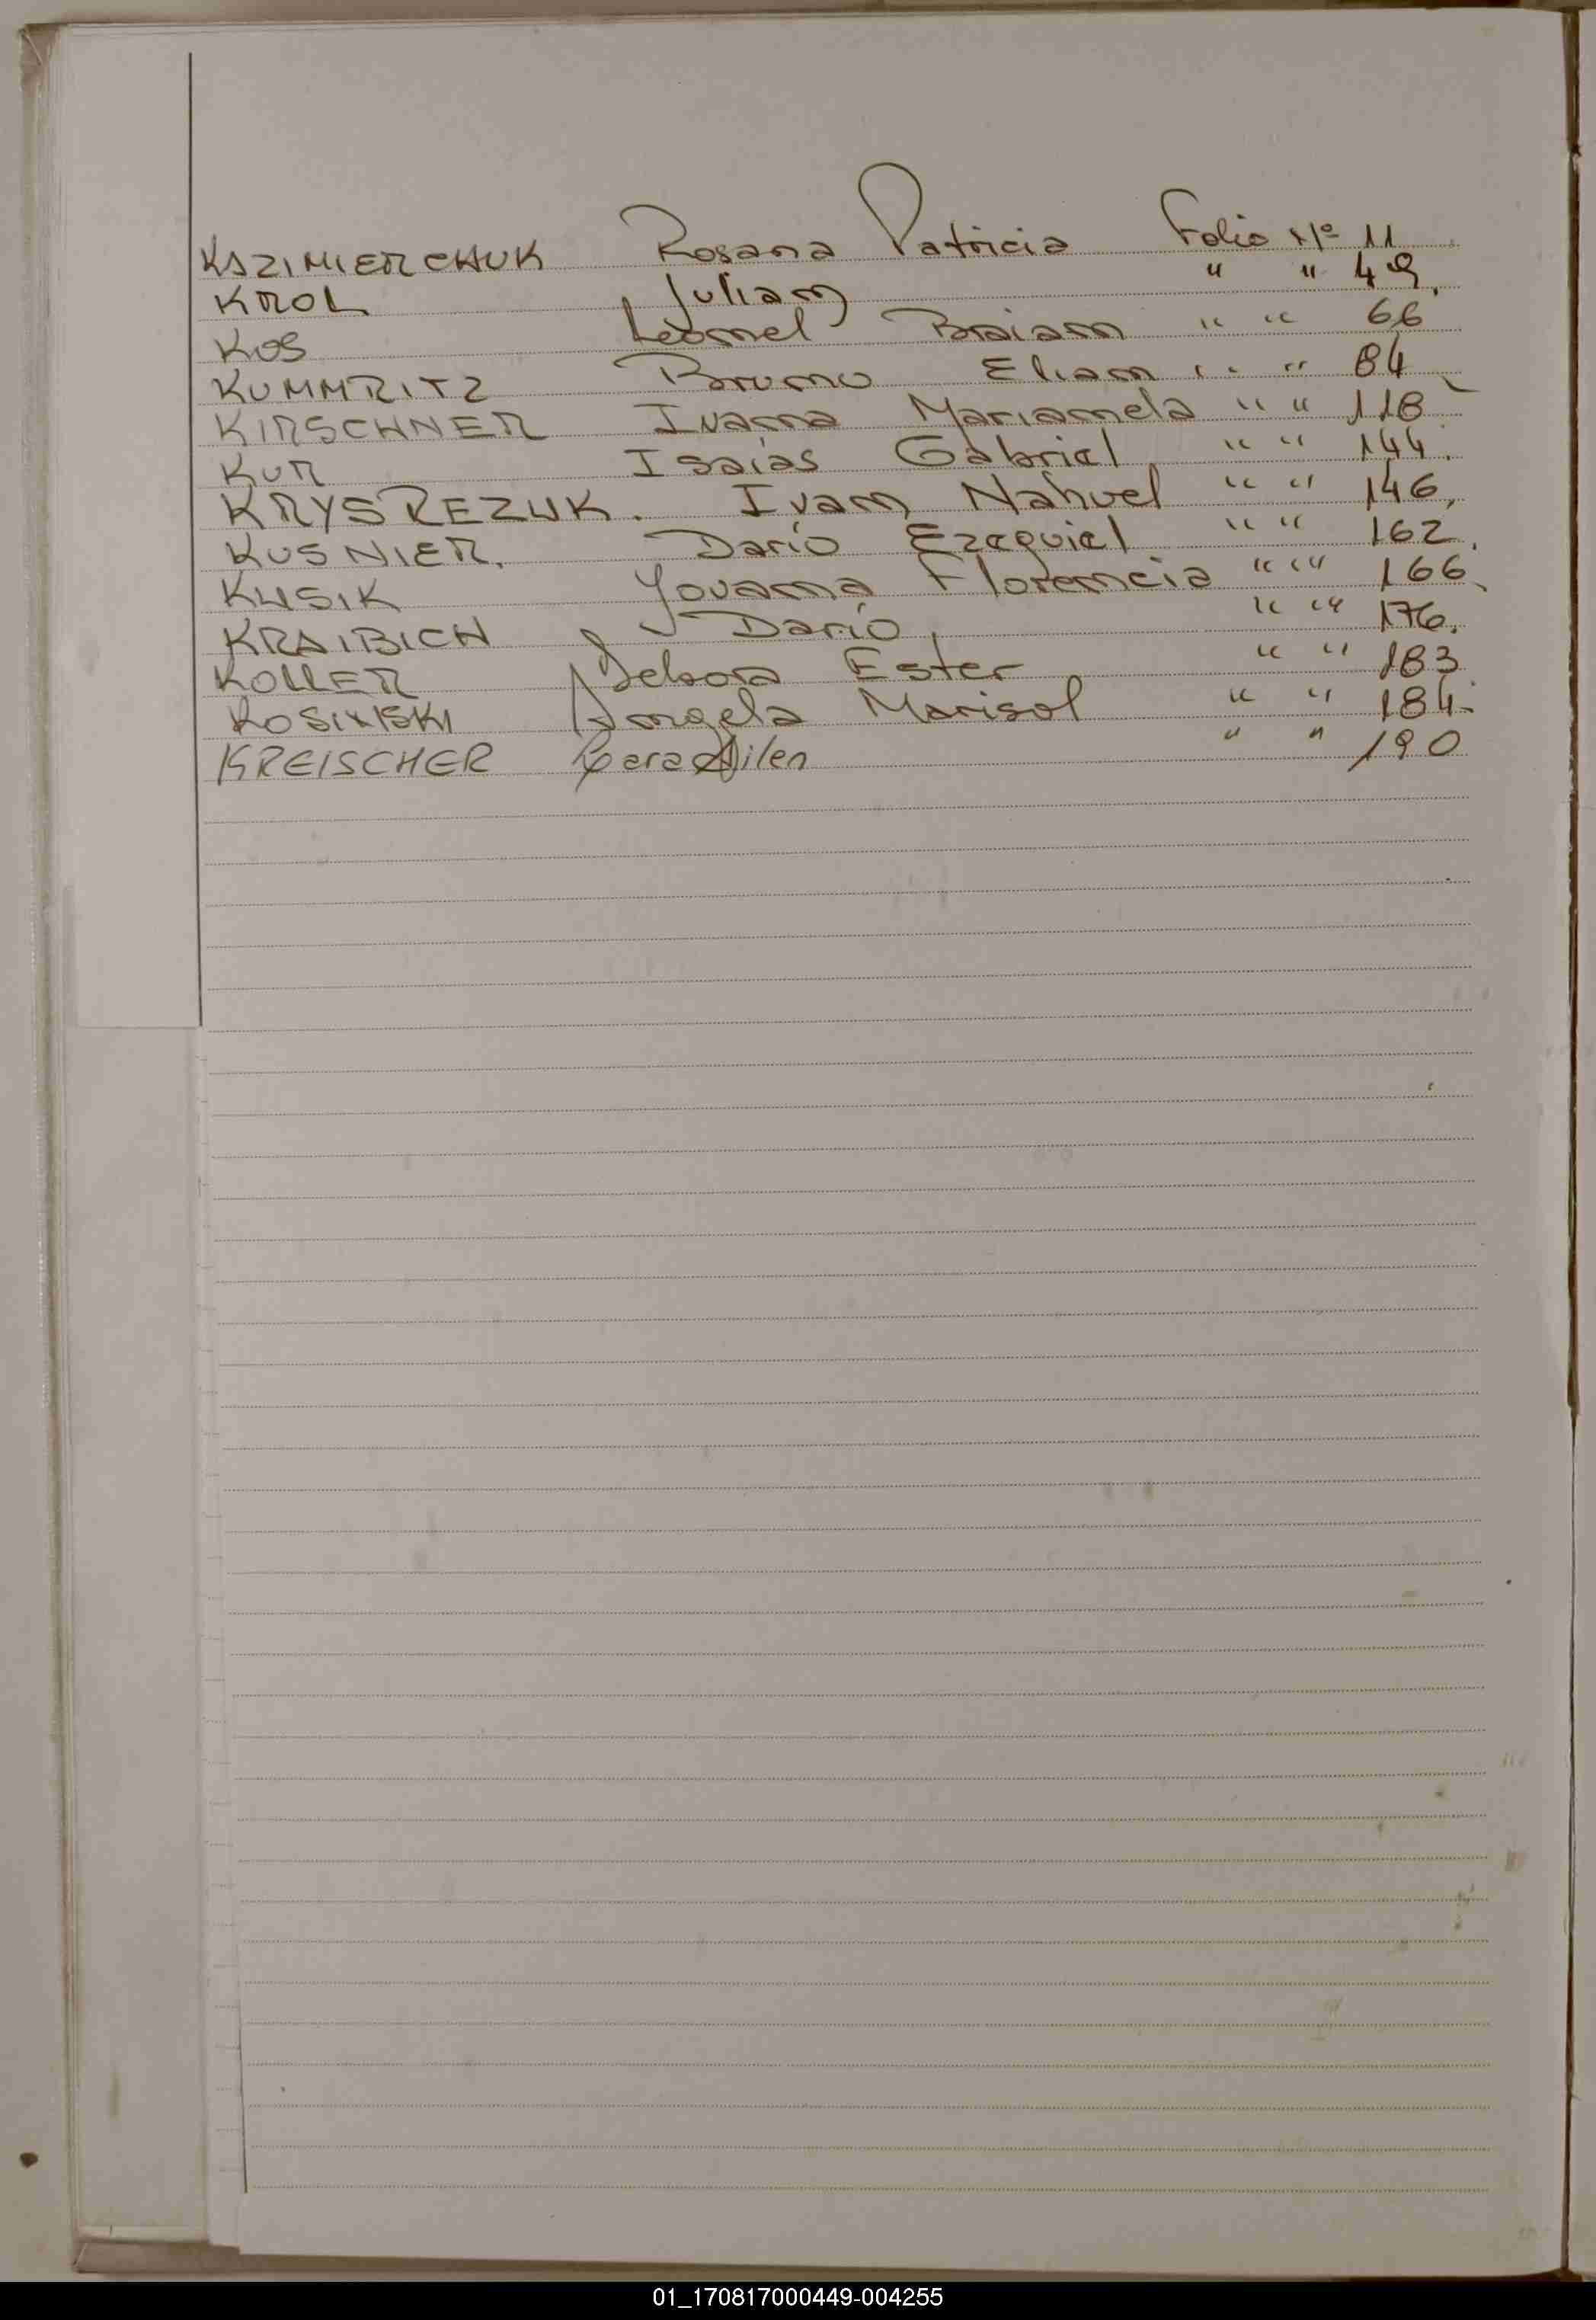 KAZIMIERCHUK Rosana Patricia Folio Nº 11
KROL Julian " " 49.
KOS Leonel Braian " " 66
KUMMRITZ Bruno Elian " " 84
KIRSCHNER Ivana Marianela " " 118
KUR Isaías Gabriel " " 144.
KRYSREZUK. Ivan Nahuel " " 146.
KUSNIER. Darío Ezequiel " " 162.
KUSIK Jovana Florencia " " 166
KRAIBICH Darío " " 176.
KOLLER Debora Ester " " 183
KOSINSKI Angela Marisol " " 184
KREISCHER Cara Ailen " " 190
01_170817000449-004255